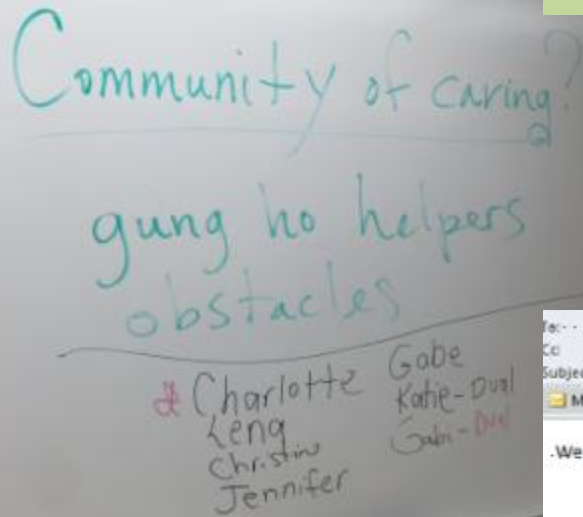 Community of caring?
gung ho helpers
obstacles
Charlotte
Leng
Christine
Jennifer
Gabe
Katie-Dual
Gabi-Dual
To:
Cc
Subjec
M
.We